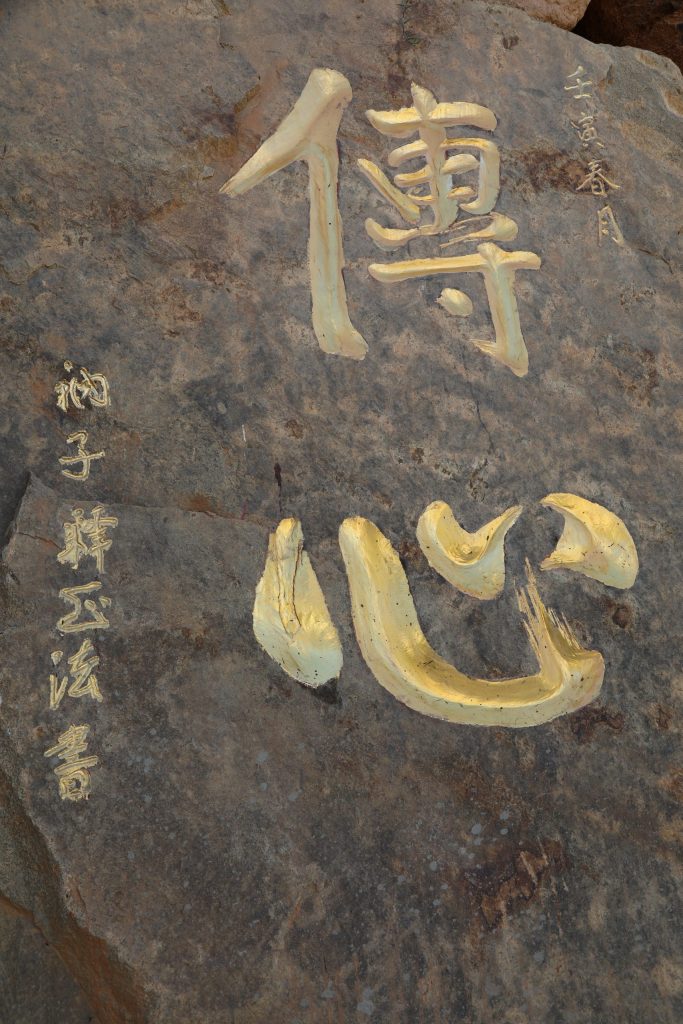 壬寅春月
傳心
衲子釋正法書